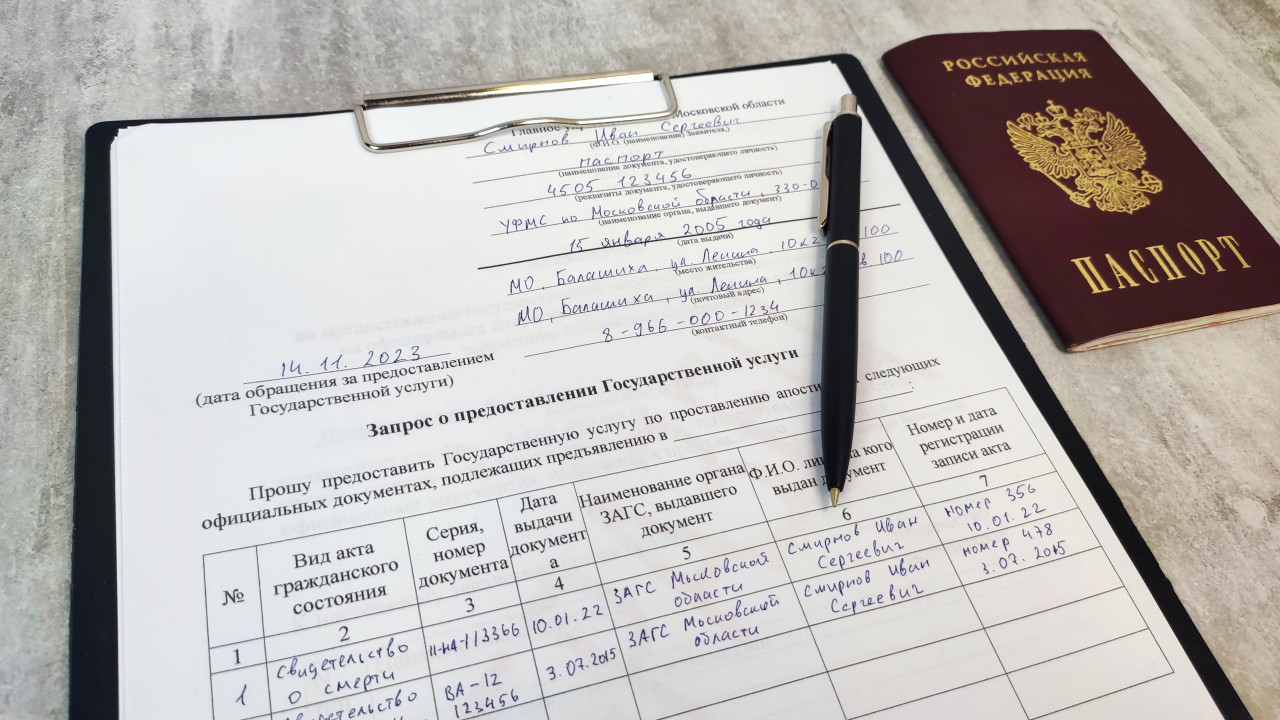 Главное Московской области
Смирнов Иван Сергеевич
(Ф.И.О. (наименование) Заявителя,)
паспорт
(наименование документа, удостоверяющего личность)
4505 123456
(реквизиты документа, удостоверяющего личность)
УФМС по Московской области, 330-0
(наименование органа, выдавшего документ)
15 января 2005 года
(дата выдачи)
МО, Балашиха, ул. Ленина, 10к2 100
(место жительства)
МО, Балашиха, ул Ленина, 10к2 в 100
(почтовый адрес)
8-966-000-1234
(контактный телефон)
14.11.2023
(дата обращения за предоставлением
Государственной услуги)
Запрос о предоставлении Государственной услуги
Прошу предоставить Государственную услугу по проставлению следующих
официальных документах, подлежащих предъявлению в :
№
Вид акта
гражданского
состояния
Серия,
номер
документа
Дата
выдачи
документ
а
Наименование органа
ЗАГС, выдавшего
документ
Ф.И.О. на кого
выдан документ
Номер и дата
регистрации
записи акта
1 2 3 4 5 6 7
1
свидетельство
о смерти
II-НА-113366
10.01.22
ЗАГС Мысловской
области
Смирнов Иван
Сергеевич
номер 356
10.01.22
ВА-12
123456
3.07.2015
ЗАГС Московской
области
Смирнов Иван
Сергеевич
номер 478
3.07.2015
РОССИЙСКАЯ
ФЕДЕРАЦИЯ
ПАСПОРТ